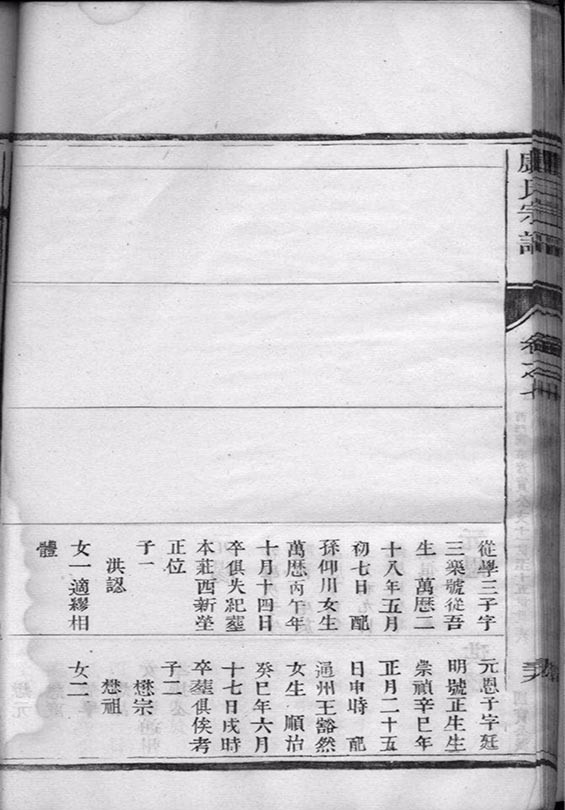 康氏宗譜
從學三子字
三樂號從吾
生 萬曆二
十八年五月
初七日 配
孫仰川女生
萬曆丙午年
十月十四日
卒俱失紀塟
本莊西新塋
正位
子一
洪認
女一適繆相
體
元恩子字廷
明號正生生
崇禎辛巳年
正月二十五
日申時 配
通州王豁然
女生 順治
癸巳年六月
十七日戌時
卒塟俱俟考
子二
懋宗
懋祖
女二